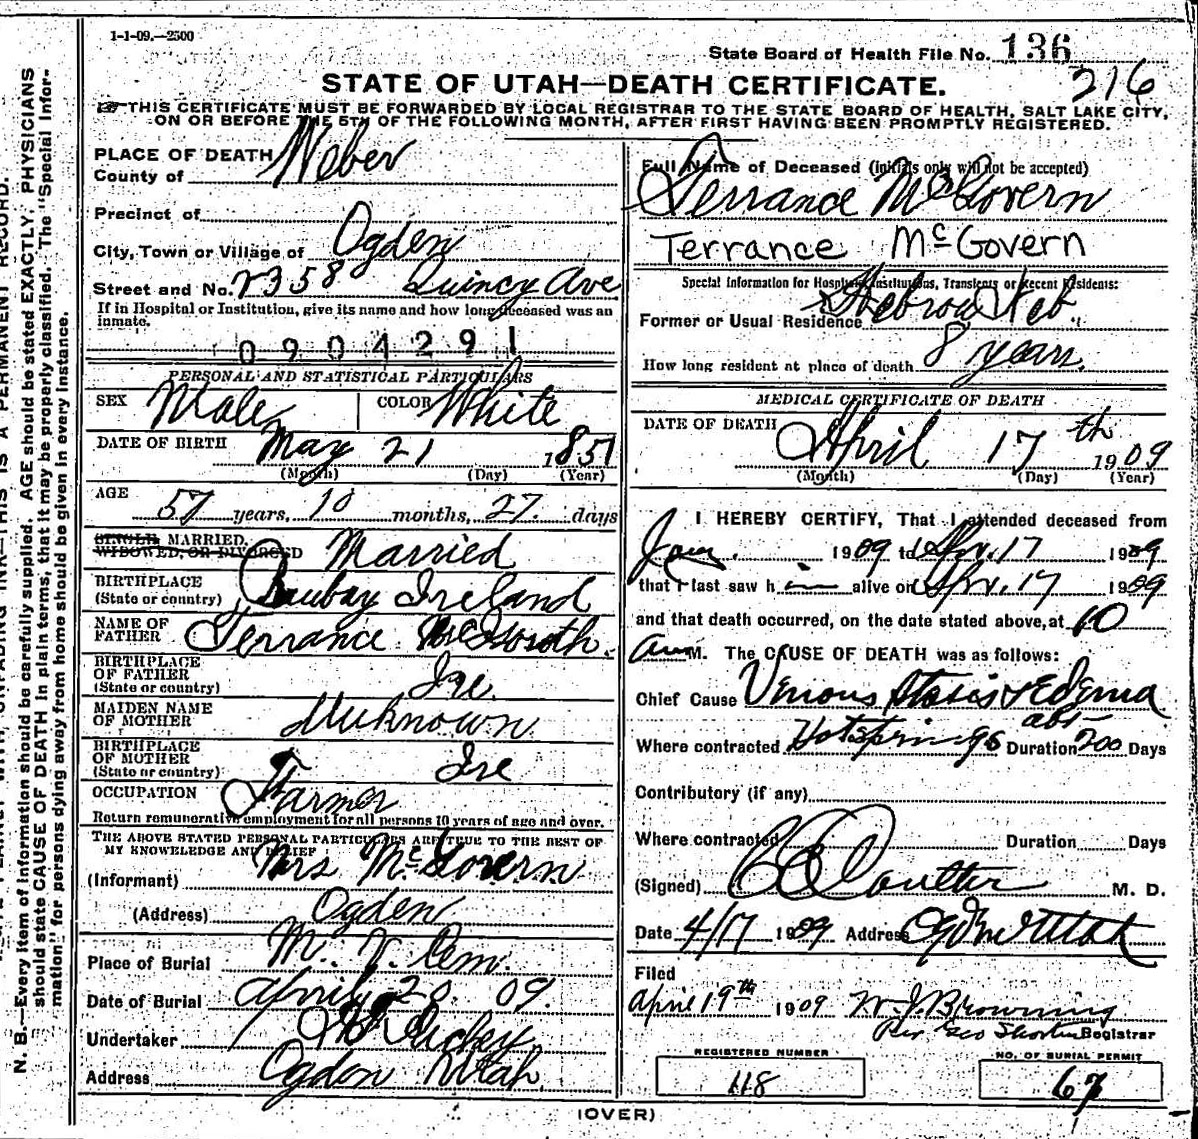 1-1-09.—2500
State Board of Health File No. 136
216
STATE OF UTAH—DEATH CERTIFICATE.
THIS CERTIFICATE MUST BE FORWARDED BY LOCAL REGISTRAR TO THE STATE BOARD OF HEALTH, SALT LAKE CITY,
ON OR BEFORE THE 5TH OF THE FOLLOWING MONTH, AFTER FIRST HAVING BEEN PROMPTLY REGISTERED.
PLACE OF DEATH
County of Weber
Precinct of
City, Town or Village of Ogden
Street and No. 2358 Quincy Ave
If in Hospital or Institution, give its name and how long deceased was an
inmate.
0904291
PERSONAL AND STATISTICAL PARTICULARS
SEX Male COLOR White
DATE OF BIRTH May 21 1851
(Month) (Day) (Year)
AGE 57 years, 10 months, 27 days
SINGLE, MARRIED,
WIDOWED, OR DIVORCED Married
BIRTHPLACE
(State or country) Ireland
NAME OF
FATHER Terrance
BIRTHPLACE
OF FATHER
(State or country) Ire.
MAIDEN NAME
OF MOTHER Unknown
BIRTHPLACE
OF MOTHER
(State or country) Ire
OCCUPATION Farmer
Return remunerative employment for all persons 10 years of age and over.
THE ABOVE STATED PERSONAL PARTICULARS ARE TRUE TO THE BEST OF
MY KNOWLEDGE AND BELIEF
(Informant) Mrs McGovern
(Address) Ogden
Place of Burial M. V. Cem.
Date of Burial April 20 09.
Undertaker
Address Ogden Utah
Full Name of Deceased (initials only will not be accepted)
Terrance McGovern
Terrance McGovern
Special Information for Hospitals, Institutions, Transients or Recent Residents:
Former or Usual Residence Hebron Neb.
How long resident at place of death 8 years.
MEDICAL CERTIFICATE OF DEATH
DATE OF DEATH April 17th 1909
(Month) (Day) (Year)
I HEREBY CERTIFY, That I attended deceased from
Jany. 1909 to Apr. 17 1909
that I last saw him alive on Apr. 17 1909
and that death occurred, on the date stated above, at 10
am M. The CAUSE OF DEATH was as follows:
Chief Cause Venous stasis & Edema
Where contracted Hotsprings Duration abt 200 Days
Contributory (if any)
Where contracted Duration Days
(Signed) Coulter M. D.
Date 4/17 1909 Address Ogden Utah
Filed
April 19th 1909 W. J. Browning
Per Geo Shorten Registrar
REGISTERED NUMBER
118
NO. OF BURIAL PERMIT
67
(OVER)
N. B.—Every item of information should be carefully supplied. AGE should be stated EXACTLY. PHYSICIANS
should state CAUSE OF DEATH in plain terms, that it may be properly classified. The "Special Infor-
mation" for persons dying away from home should be given in every instance.